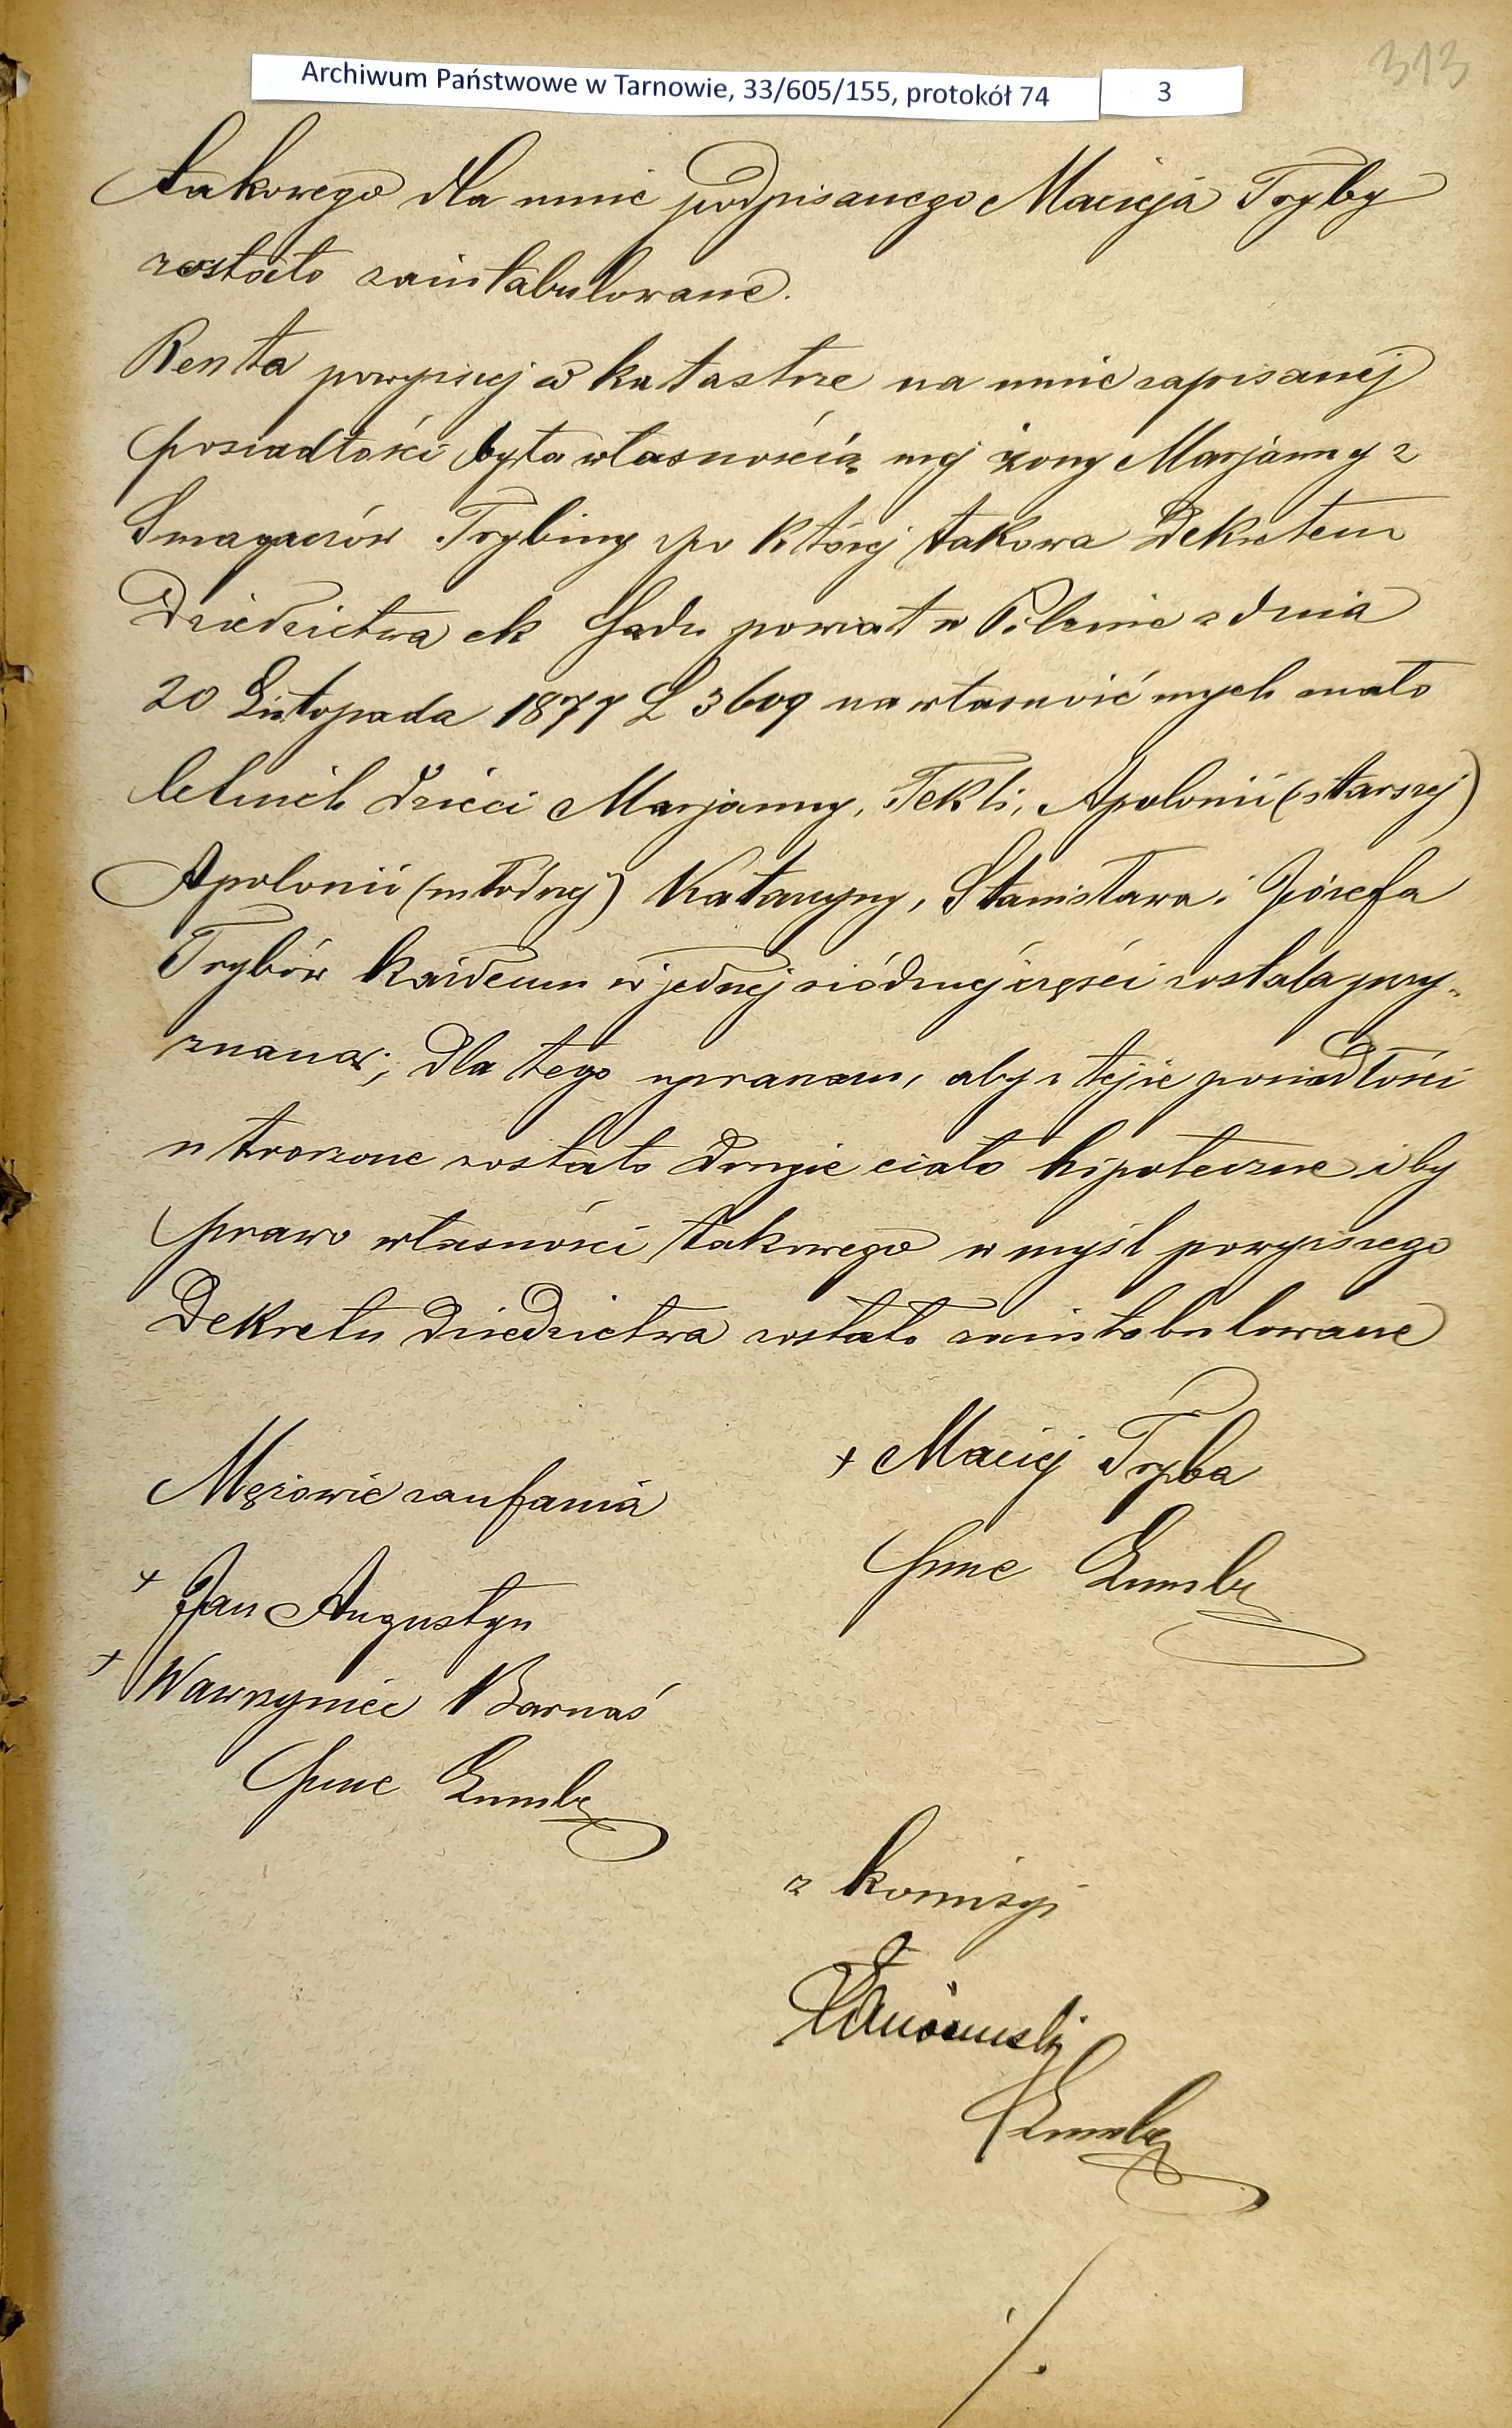 313
Archiwum Państwowe w Tarnowie, 33/605/155, protokół 74
3
takowego dla mnie podpisanego Macieja Tryby
zostało zaintabulowane.
Reszta powyższej w katastrze na mnie zapisanej
posiadłości była własnością mej żony Marjanny z
Smagaczów Trybiny po której takowa Dekretem
Dziedzictwa ck Sądu powiat w Pilznie z dnia
20 Listopada 1877 L 3609 na własność mych mało
letnich dzieci Marjanny, Tekli, Apolonii (starszej)
Apolonii (młodszej) Katarzyny, Stanisława i Józefa
Trybów każdemu w jednej siódmej części została przy-
znana; dla tego upraszam, aby z tejże posiadłości
utworzone zostało drugie ciało hipoteczne i by
prawo własności takowego w myśl powyższego
Dekretu dziedzictwa zostało zaintabulowane
+ Maciej Tryba
Mężowie zaufania
+ Jan Augustyn
+ Wawrzyniec Barnaś
z komisyi